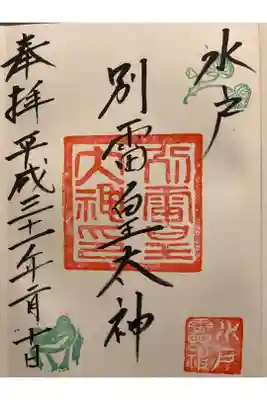 水戸
別雷皇太神
奉拝 平成三十一年二月十日
別雷皇
大神印
水戸